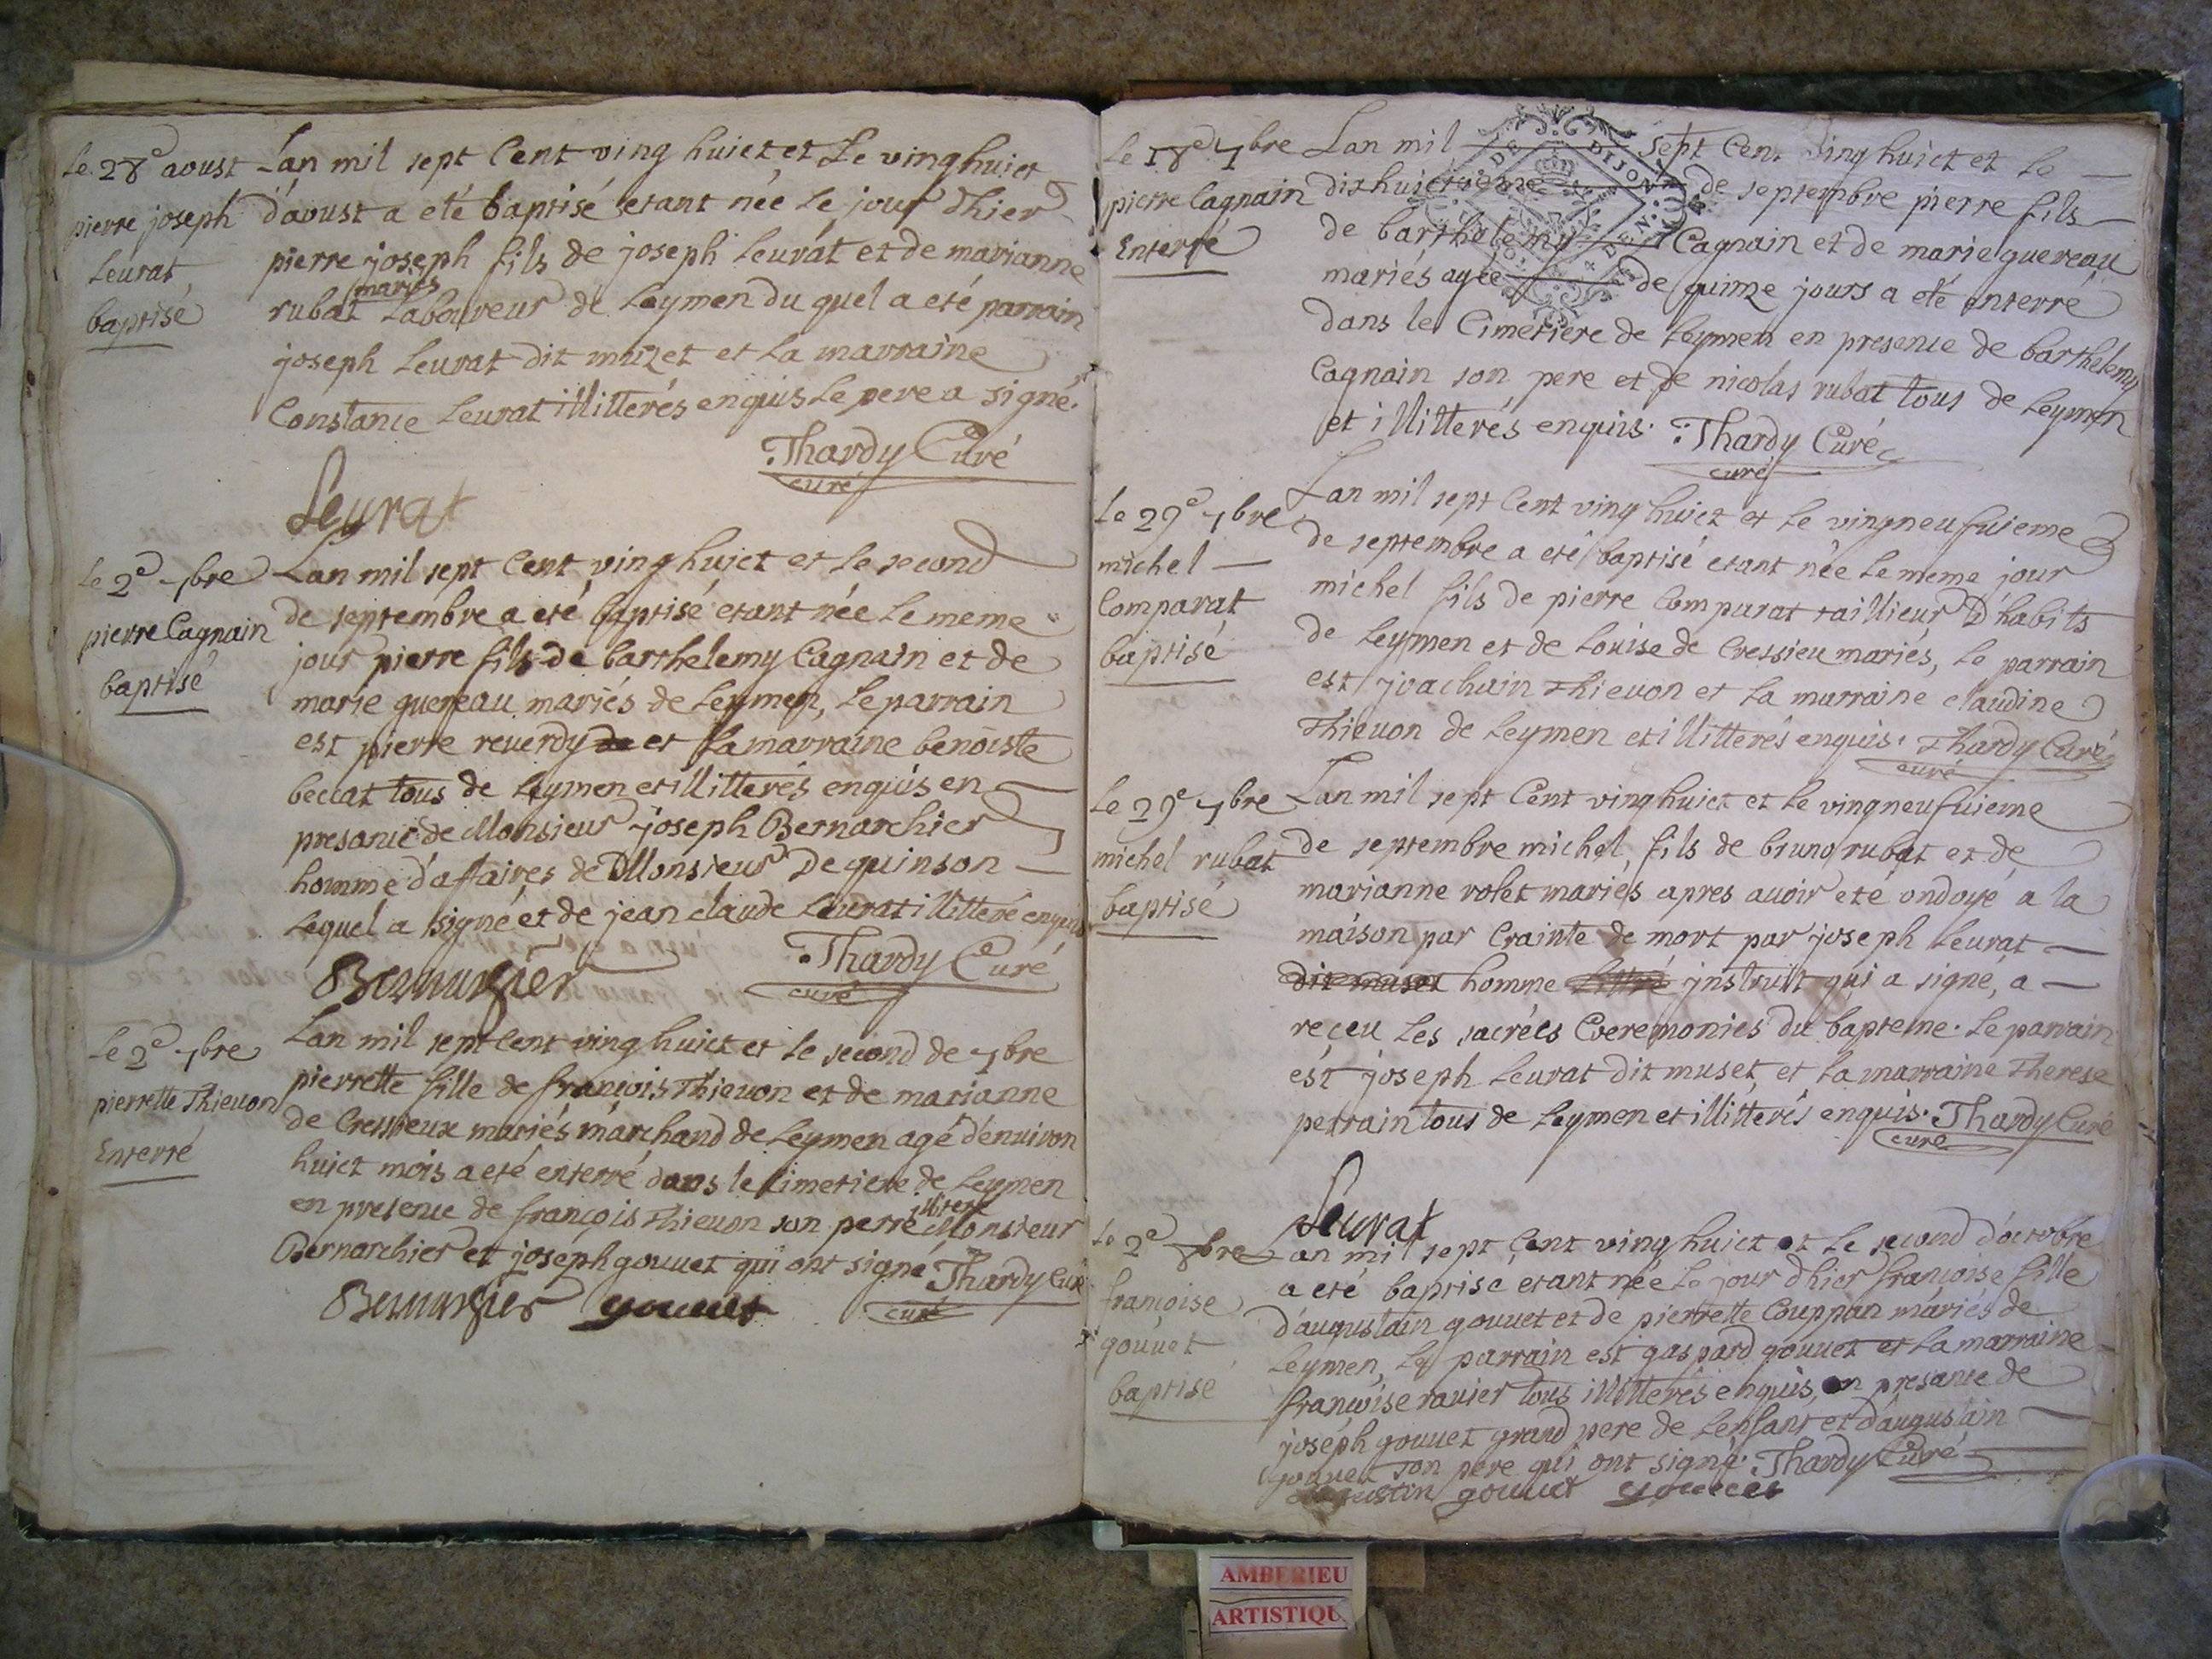 Le 28e aoust
pierre joseph
Leurat
baptisé
Lan mil sept Cent ving huict et Le ving huict
d'aoust a eté baptisé etant née Le jour d'hier
pierre joseph fils de joseph Leurat et de marianne
mariés
rubat Laboureur de Leymen du quel a eté parrain
joseph Leurat dit muzet et La marraine
Constance Leurat illitterés enquis Le pere a signé.
Thardy Curé
curé
Leurat
Le 2e 7bre
pierre Cagnain
baptisé
Lan mil sept Cent ving huict et Le second
de septembre a eté baptisé etant née Le meme
jour pierre fils de barthelemy Cagnain et de
marie guereau mariés de Leymen, Le parrain
est pierre reuerdy de et La marraine benoiste
beccat tous de Leymen et illitterés enquis en
presance de Monsieur joseph Bernarchier
homme d'affaires de Monsieur De quinson
Lequel a signé et de jean claude Leurat illitteré enquis
Thardy Curé
curé
Bernarchier
Le 2e 7bre
pierrette Thieuon
Enterré
Lan mil sept Cent ving huict et le second de 7bre
pierrette fille de françois Thieuon et de marianne
de Cressieux mariés marchand de Leymen agé d'enuiron
huict mois a eté enterré dans le Cimetiere de Leymen
illiteré
en presence de françois Thieuon son perre Monsieur
Bernarchier et joseph gouuet qui ont signé Thardy Curé
curé
Bernarchier gouuet
Le 18e 7bre
pierre Cagnain
Enterré
DE DIJON
Lan mil sept Cent ving huict et Le
dixhuictieme de septembre pierre fils
de barthelemy Cagnain et de marie guereau
mariés agée de quinze jours a eté enterré
dans le Cimetiere de Leymen en presence de barthelemy
Cagnain son pere et de nicolas rubat tous de Leymen
et illitterés enquis. Thardy Curé
curé
Le 29e 7bre
michel
Comparat
baptisé
Lan mil sept Cent ving huict et Le vingneufuieme
de septembre a eté baptisé etant née Le meme jour
michel fils de pierre Comparat taillieur d'habits
de Leymen et de Louise de Cressieu mariés, Le parrain
est joachain Thieuon et La marraine claudine
Thieuon de Leymen et illitterés enquis. Thardy Curé
curé
Le 29e 7bre
michel rubat
baptisé
Lan mil sept Cent ving huict et Le vingneufuieme
de septembre michel, fils de bruno rubat et de
marianne rolet mariés apres auoir eté ondoyé a la
maison par Crainte de mort par joseph Leurat
dit muset homme jnstruit qui a signé, a
reçeu Les sacrées Ceremonies du bapteme. Le parrain
est joseph Leurat dit muset et La marraine Therese
perrain tous de Leymen et illitterés enquis. Thardy Curé
curé
Leurat
Le 2e 8bre
françoise
gouuet
baptisé
Lan mil sept Cent ving huict et Le second d'octobre
a eté baptisé etant née Le jour d'hier françoise fille
d'augustain gouuet et de pierrette Couppan mariés de
Leymen, Le parrain est gaspard gouuet et La marraine
françoise rauier tous illitterés enquis, en presance de
joseph gouuet grand pere de Lenfant et d'augustain
gouuet son pere qui ont signé. Thardy Curé
augustin gouuet gouuet
AMBERIEU
ARTISTIQU